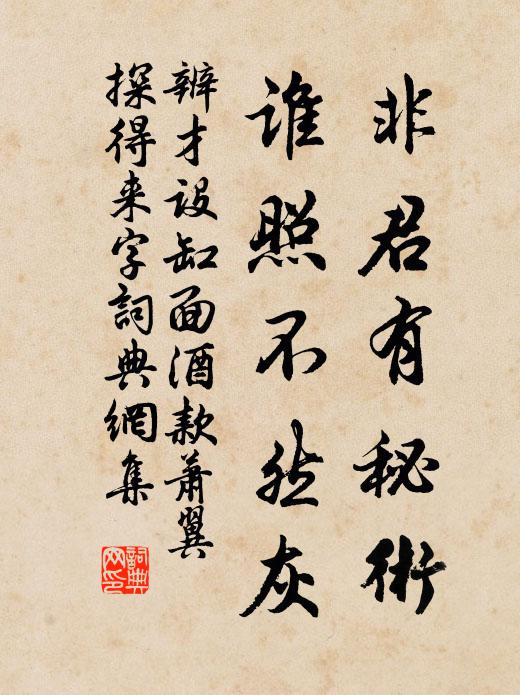 非君有秘術
誰照不然灰
辨才設缸面酒款蕭翼
探得来字詞典網集
詞典网印